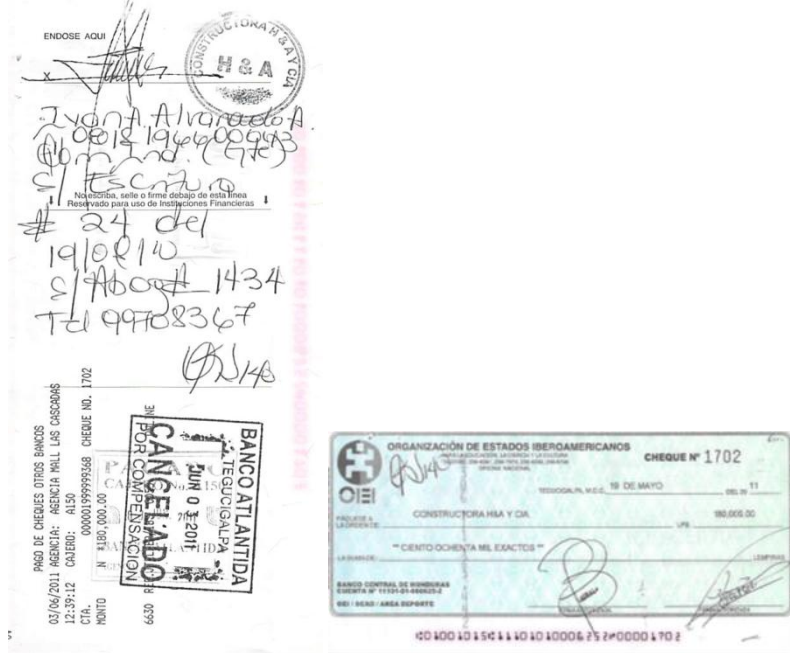 ENDOSE AQUI
X
CONSTRUCTORA H & A Y CIA
H & A
Ivan A. Alvarado A.
S/ Escritura
No escriba, selle o firme debajo de esta línea
Reservado para uso de Instituciones Financieras
# 24 del
S/ Abog# 1434
Tel 99708367
PAGO DE CHEQUES OTROS BANCOS
03/06/2011 AGENCIA: AGENCIA MALL LAS CASCADAS
12:39:12 CAJERO: A150
CTA. 0000019999999368 CHEQUE NO. 1702
MONTO N 180,000.00
6630
BANCO ATLANTIDA
TEGUCIGALPA
JUN 03 2011
CANCELADO
POR COMPENSACION
ORGANIZACIÓN DE ESTADOS IBEROAMERICANOS
PARA LA EDUCACIÓN, LA CIENCIA Y LA CULTURA
OFICINA NACIONAL
CHEQUE Nº 1702
OEI
TEGUCIGALPA, M.D.C. 19 DE MAYO DEL 20 11
PAGUESE A
LA ORDEN DE CONSTRUCTORA H&A Y CIA LPS 180,000.00
** CIENTO OCHENTA MIL EXACTOS **
LA SUMA DE LEMPIRAS
BANCO CENTRAL DE HONDURAS
CUENTA Nº 11101-01-000625-2
OEI / DCAD / AREA DEPORTE